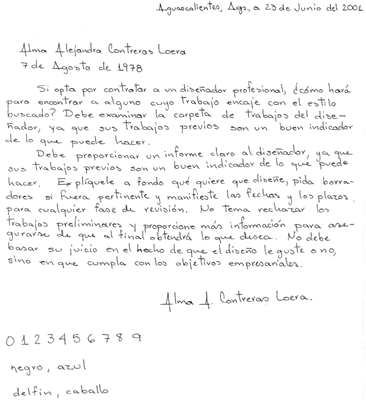 Aguascalientes, Ags., a 23 de Junio del 2001
Alma Alejandra Contreras Loera
7 de Agosto de 1978
Si opta por contratar a un diseñador profesional, ¿cómo hará
para encontrar a alguno cuyo trabajo encaje con el estilo
buscado? Debe examinar la carpeta de trabajos del dise-
ñador, ya que sus trabajos previos son un buen indicador
de lo que puede hacer.
Debe proporcionar un informe claro al diseñador, ya que
sus trabajos previos son un buen indicador de lo que puede
hacer. Explíquele a fondo qué quiere que diseñe, pida borra-
dores si fuera pertinente y manifieste las fechas y los plazos
para cualquier fase de revisión. No tema rechazar los
trabajos preliminares y proporcione más información para ase-
gurarse de que al final obtendrá lo que desea. No debe
basar su juicio en el hecho de que el diseño le guste o no,
sino en que cumpla con los objetivos empresariales.
Alma A. Contreras Loera.
0 1 2 3 4 5 6 7 8 9
negro, azul
delfín, caballo